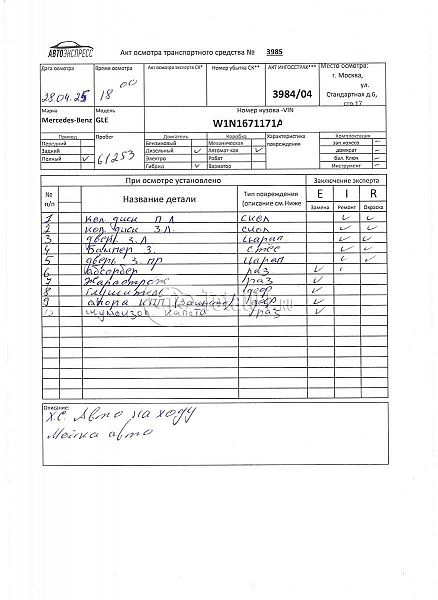 АВТОЭКСПРЕСС
Акт осмотра транспортного средства № 3985
Дата осмотра
28.04.25
Время осмотра
18 00
Акт осмотра эксперта СК*
Номер убытка СК**
АКТ ИНГОССТРАХ***
3984/04
Место осмотра
г. Москва,
ул.
Стандартная д.6,
стр.17
Марка
Mercedes-Benz
Модель
GLE
Номер кузова -VIN
W1N1671171A
Привод
Передний
Задний
Полный ✓
Пробег
61253
Двигатель
Бензиновый
Дизельный ✓
Электро
Гибрид ✓
Коробка
Механическая
Автомат-кая ✓
Робот
Вариатор
Характеристика
повреждения
Комплектация
зап.колесо —
домкрат —
бал. Ключ —
Инструмент —
При осмотре установлено
Заключение эксперта
№
п/п
Название детали
Тип повреждения
(описание см.Ниже
E I R
Замена Ремонт Окраска
1 Кол. диск П Л скол ✓ ✓
2 кол. диск З.Л. скол ✓ ✓
3 дверь З.Л царап ✓ ✓
4 Бампер З. ✓
5 дверь З. пр царап ✓ ✓
6 абсорбер раз ✓
7 раз ✓
8 Глушитель деф ✓
9 опора КПП деф ✓
10 шумоизол. капота раз ✓
Описание:
Х.С. Авто на ходу
Мойка авто